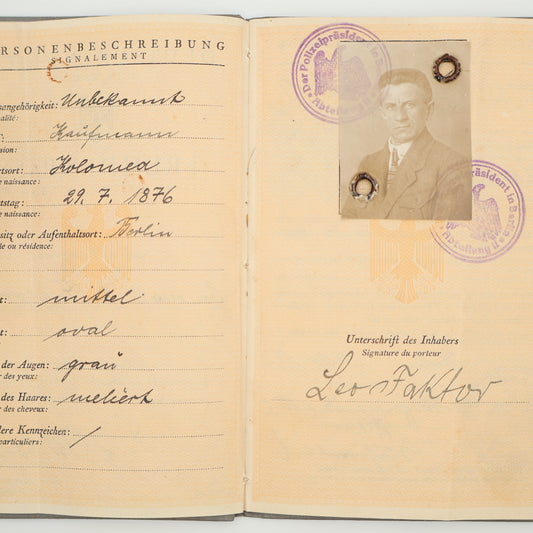 ERSONENBESCHREIBUNG
SIGNALEMENT
sangehörigkeit: Unbekannt
alité:
: Kaufmann
sion:
rtsort: Kolomea
e naissance:
tstag: 29. 7. 1876
e naissance:
sitz oder Aufenthaltsort: Berlin
le ou résidence:
t: mittel
t: oval
der Augen: grau
r des yeux:
des Haares: meliert
r des cheveux:
dere Kennzeichen: /
particuliers:
Der Polizeipräsident in
Abteilung
präsident in Berlin
Abteilung II
Unterschrift des Inhabers
Signature du porteur
Leo Faktor